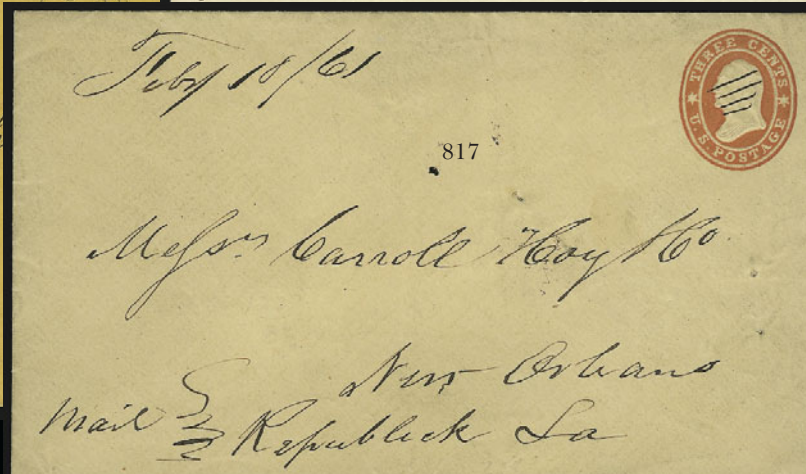 Feby 18/61
THREE CENTS
U.S. POSTAGE
817
Messrs Carroll Hoy & Co
New Orleans
Mail
Republick La